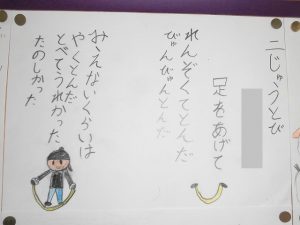 二じゅうとび
足をあげて
れんぞくてとんだ
びゅんびゅんとんだ
みえないくらいは
やくとんだ
とべてうれかった
たのしかった